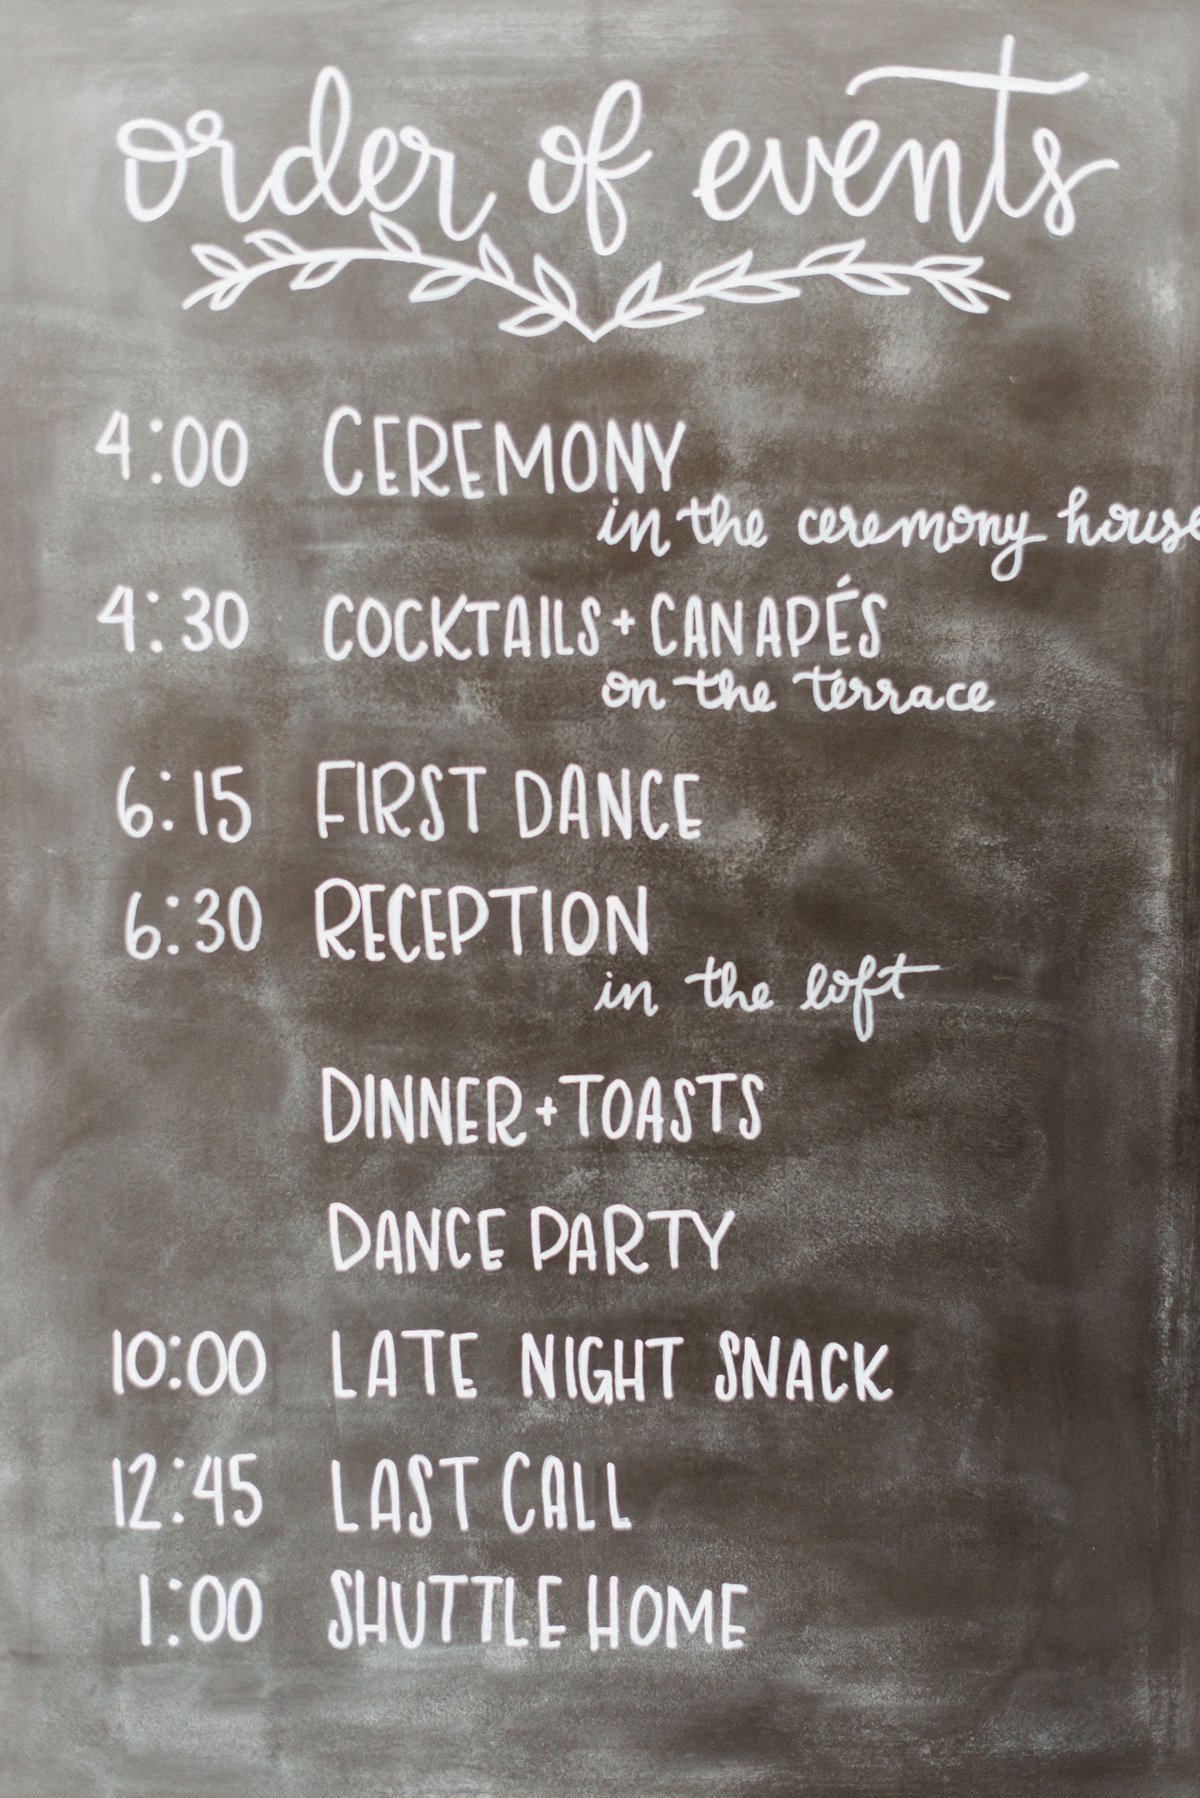 order of events
4:00 CEREMONY
in the ceremony house
4:30 COCKTAILS + CANAPÉS
on the terrace
6:15 FIRST DANCE
6:30 RECEPTION
in the loft
DINNER + TOASTS
DANCE PARTY
10:00 LATE NIGHT SNACK
12:45 LAST CALL
1:00 SHUTTLE HOME